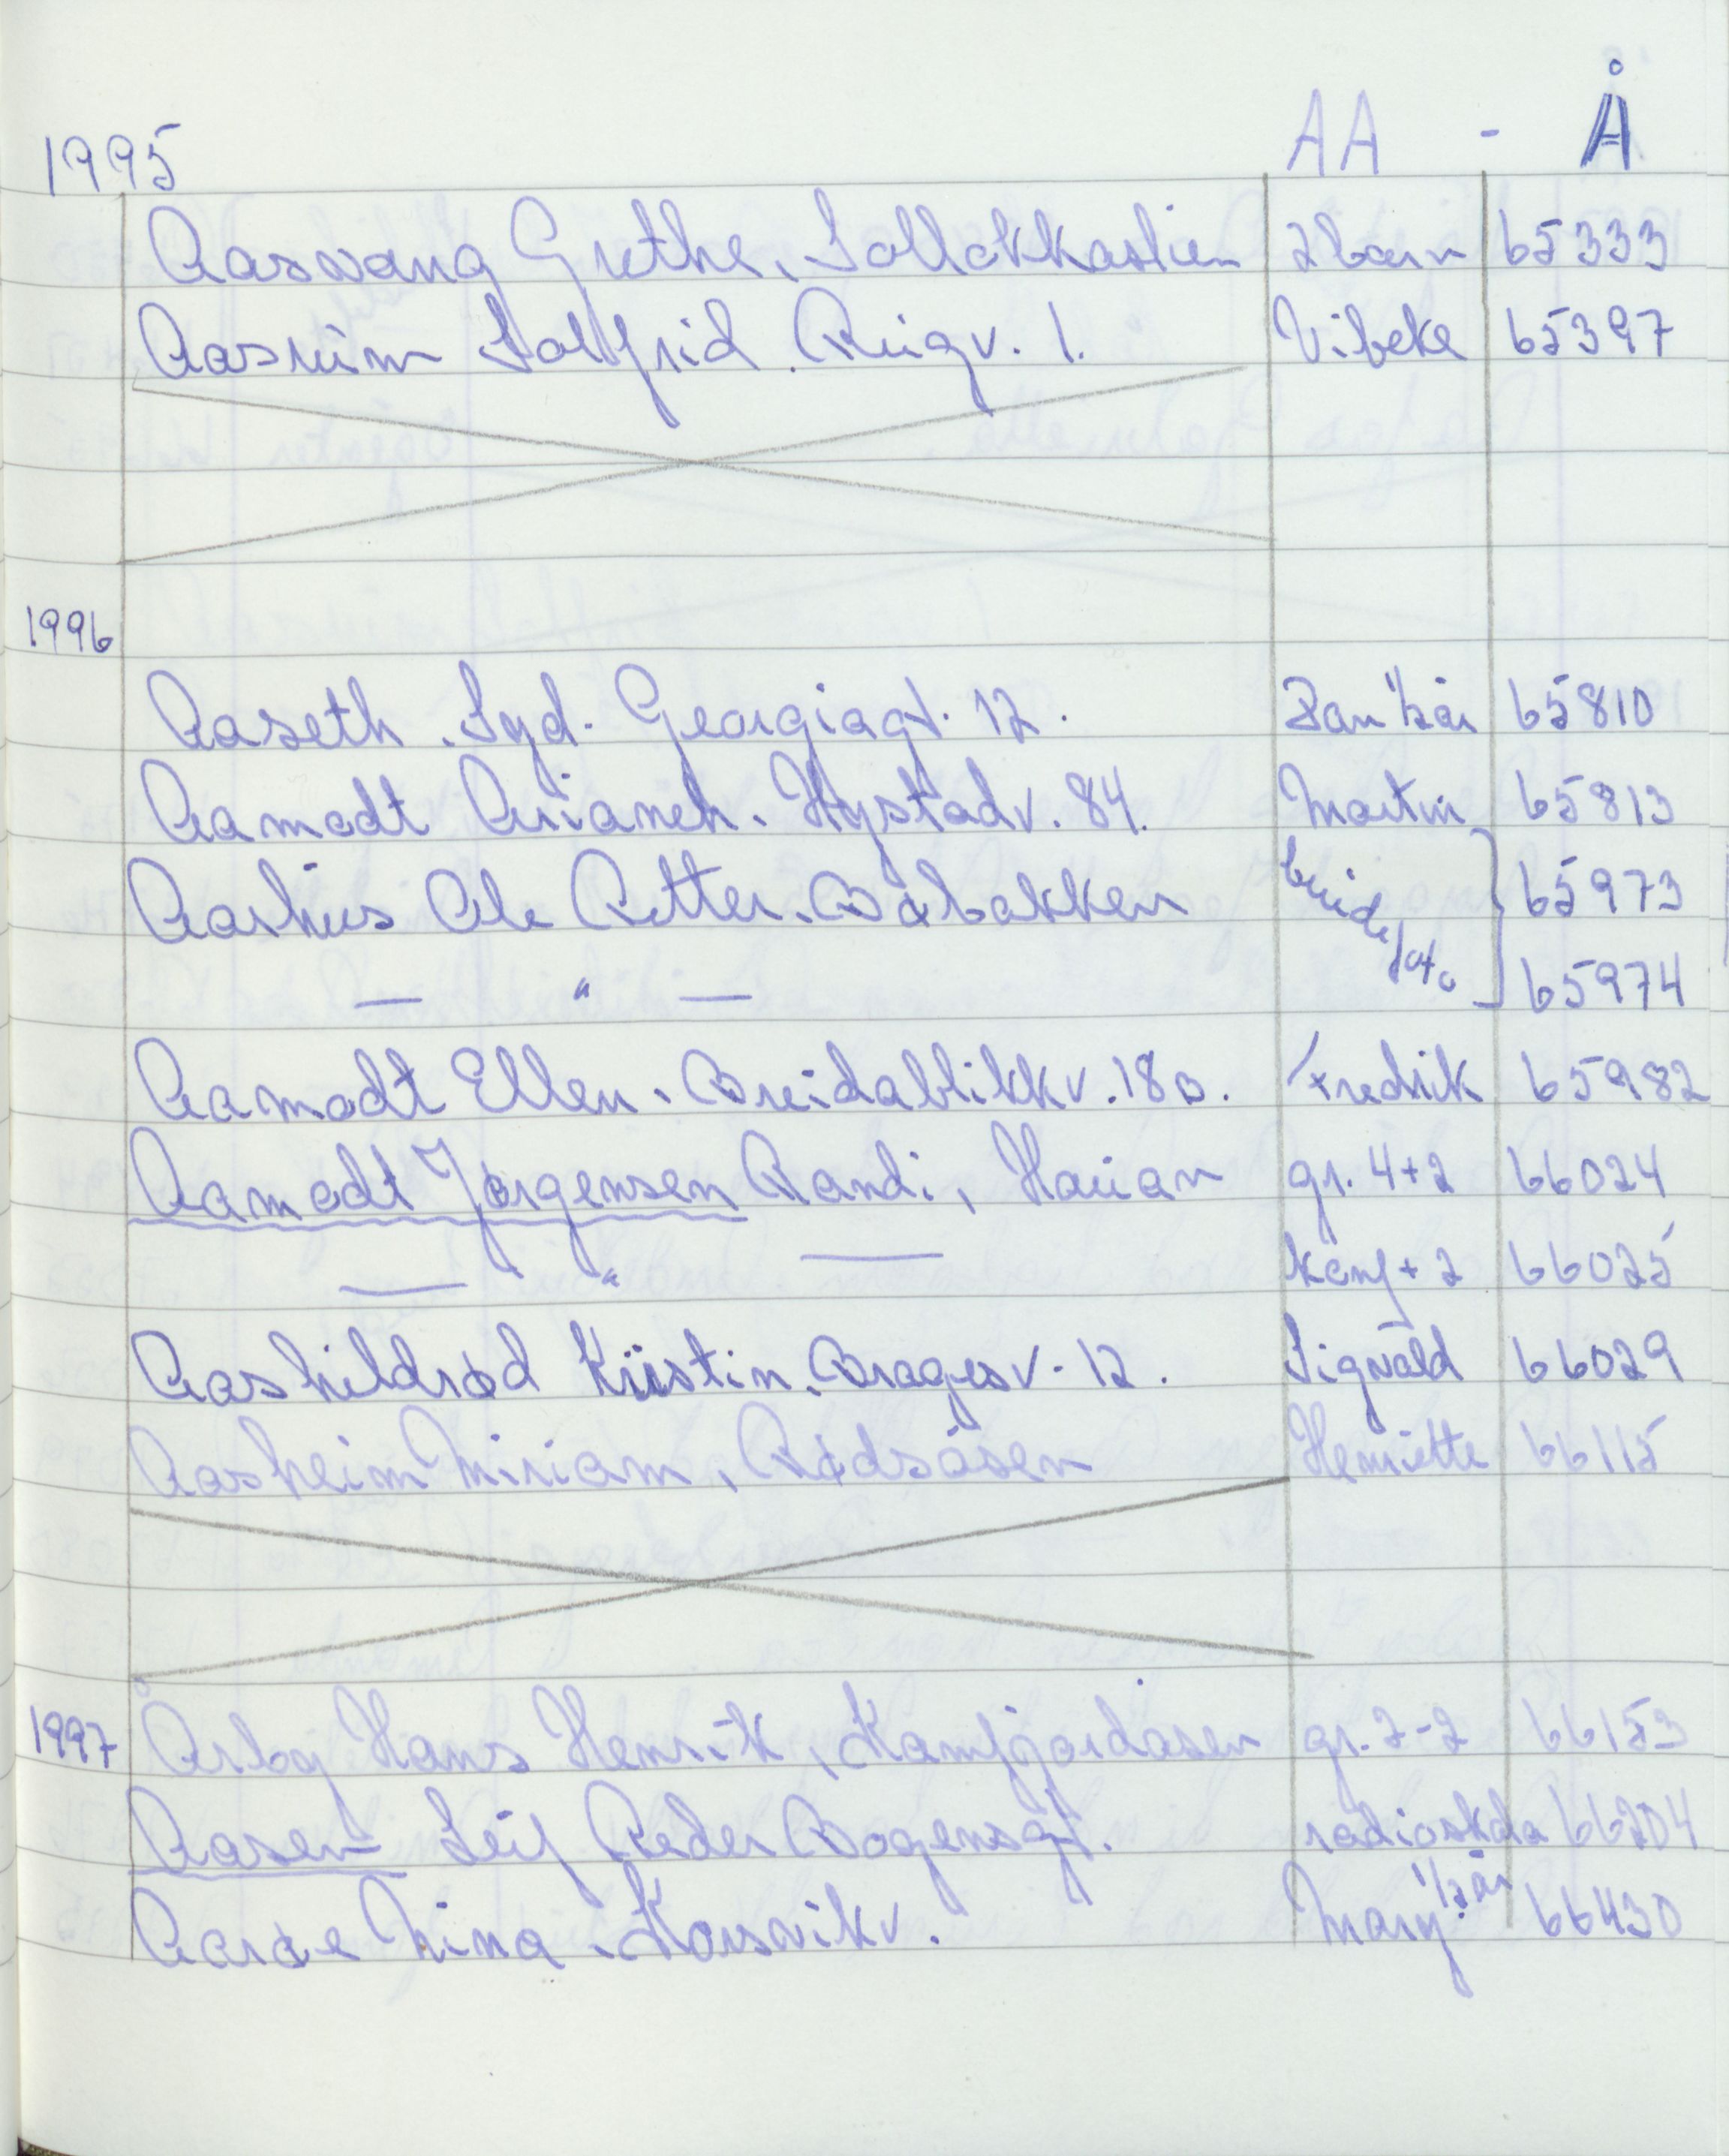 1995 AA - Å
Aasvang Grethe, Solløkkaslien 2 barn 65333
Aasrum Solfrid. Ringv. 1. Vibeke 65397
1996
Aaseth. Syd. Georgiagt. 12. 1/2 år 65810
Aamodt Arianeh. Hystadv. 84. Martin 65813
Aarhus Ole Petter. Bøbakken brude/foto 65973
— " — 65974
Aamodt Ellen. Breidablikkv. 18 b. Fredrik 65982
Aamodt Jørgensen Randi, gr. 4+2 66024
— " — konf + 2 66025
Aashildrød Kristin. Bragesv. 12. Sigvald 66029
Aasheim Miriam, Rødsåsen Henriette 66115
1997 Årby Hans Henrik, Kamfjordåsen gr. 2-2 66153
Aasen Leif Peder Bogensgt. 66204
Aarøe Nina. Korsvikv. Mary 1/2 år 66430